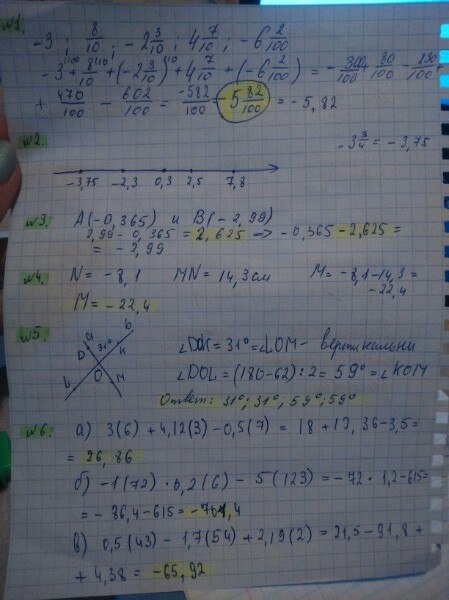 №1.
-3 ; 8/10 ; -2 3/10 ; 4 7/10 ; -6 2/100
-3 + 8/10 + (-2 3/10) + 4 7/10 + (-6 2/100) = - 300/100 80/100 - 230/100 +
+ 470/100 - 602/100 = -582/100 - 5 82/100 = -5,82
№2.
-3 3/4 = -3,75
-3,75 -2,3 0,3 2,5 7,8
№3. A(-0,365) и B(-2,99)
2,99 - 0,365 = 2,625 -> -0,365 - 2,625 =
= -2,99
№4. N = -8,1 MN = 14,3 см M = -8,1 - 14,3 =
-22,4
M = -22,4
№5.
a b
31°
D K
O
L M
∠DOK = 31° = ∠LOM - вертикальны
∠DOL = (180-62) : 2 = 59° = ∠KOM
Ответ: 31°; 31°; 59°; 59°
№6. а) 3(6) + 4,12(3) - 0,5(7) = 18 + 12,36 - 3,5 =
= 26,86
б) -1(72) · 0,2(6) - 5(123) = -72 · 1,2 - 615 =
= -86,4 - 615 = -701,4
в) 0,5(43) - 1,7(54) + 2,19(2) = 21,5 - 91,8 +
+ 4,38 = -65,92